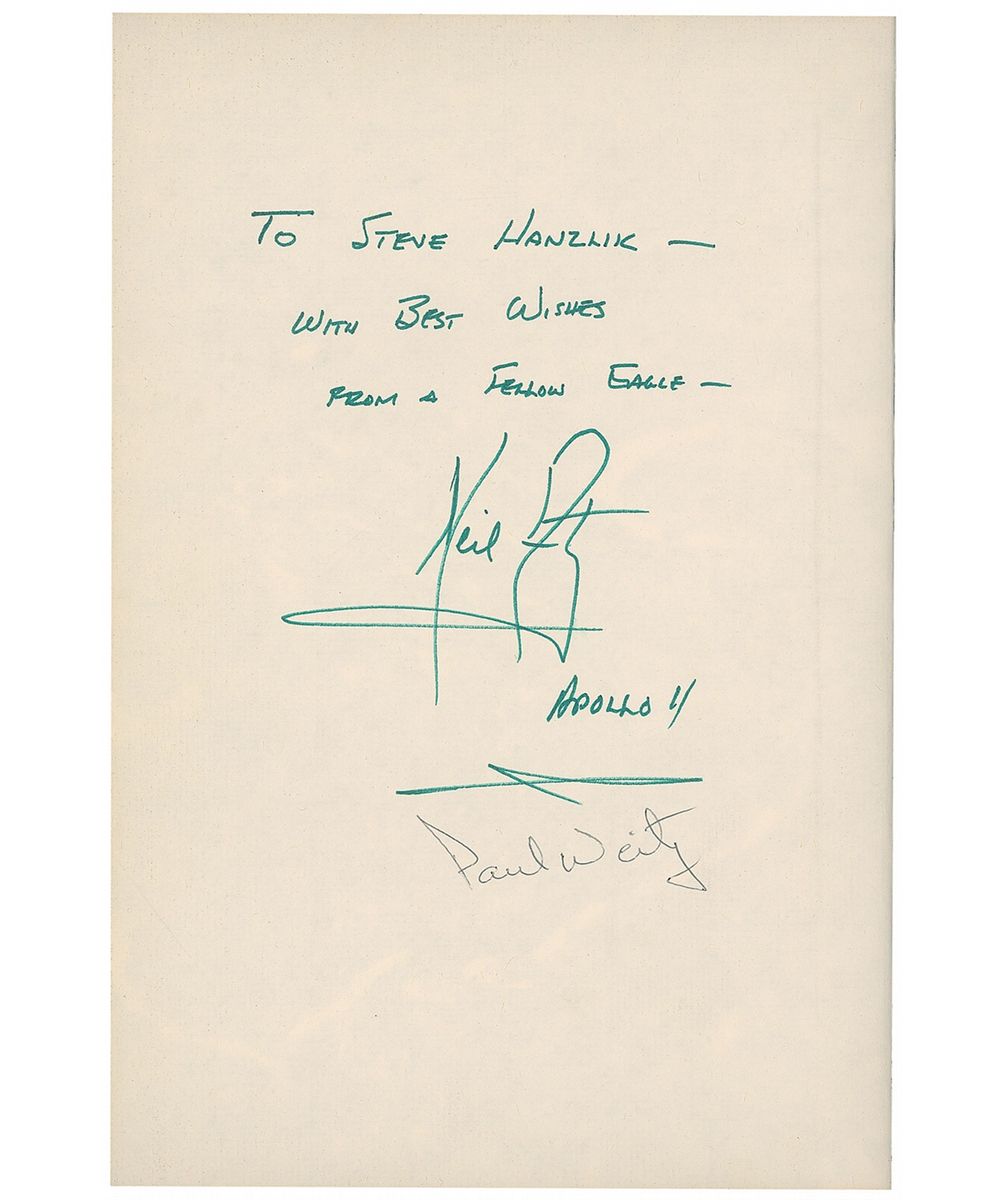 To STEVE HANZLIK —
WITH BEST WISHES
FROM A FELLOW EAGLE —
Neil
APOLLO 11
Paul Weitz